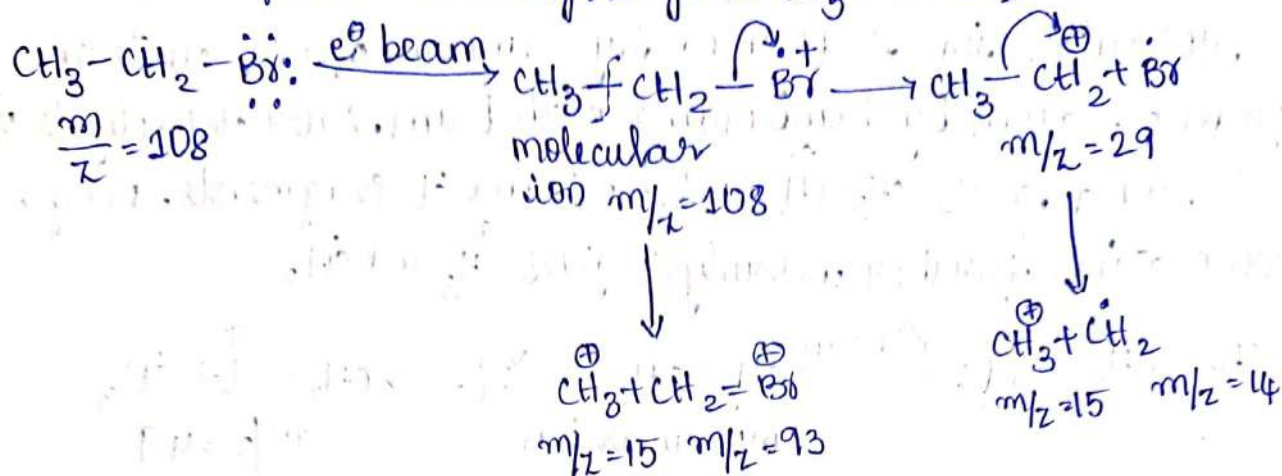 CH3-CH2-Br: e⊖ beam CH3 CH2-Br+ → CH3-CH2⊕ + Br
m/z = 108
molecular
ion m/z = 108
m/z = 29
CH3⊕ + CH2 = Br⊕
m/z = 15 m/z = 93
CH3⊕ + CH2
m/z = 15 m/z = 14